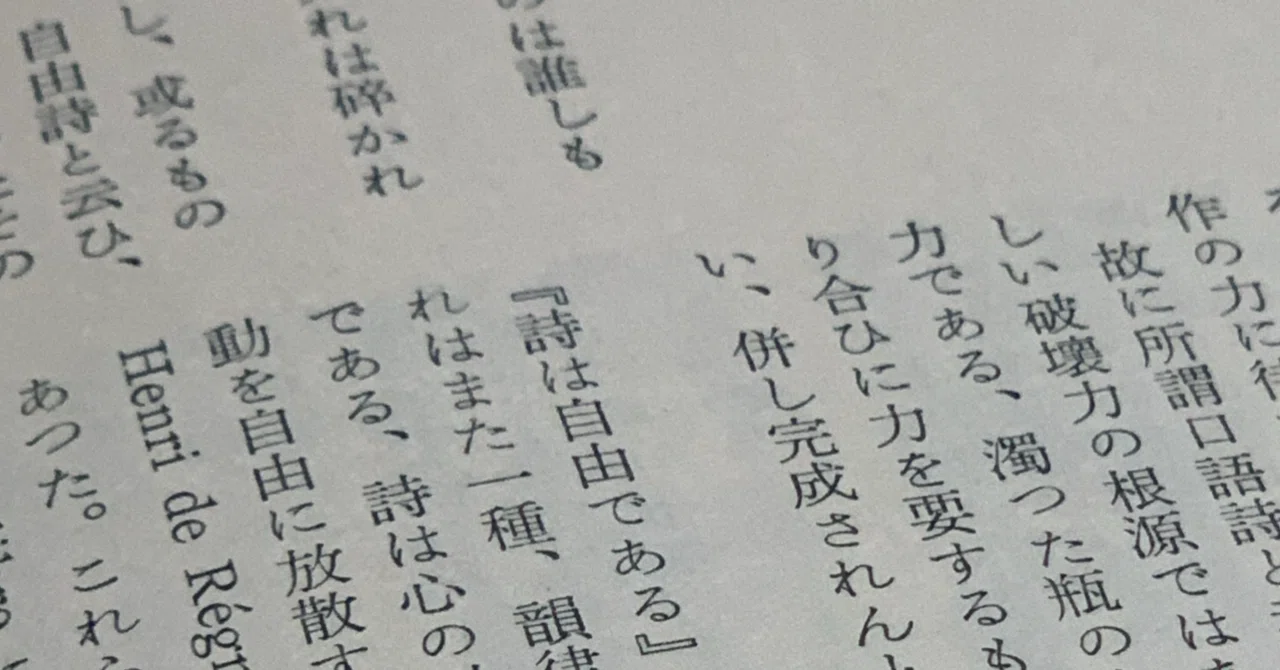 作の力に待
故に所謂口語詩と
しい破壊力の根源では
力である、濁つた瓶の
り合ひに力を要するも
い、併し完成されん
『詩は自由である』
れはまた一種、韻律
である、詩は心の
動を自由に放散す
Henri de Régr
あつた。これら
のは誰しも
れは砕かれ
し、或るもの
自由詩と云ひ、